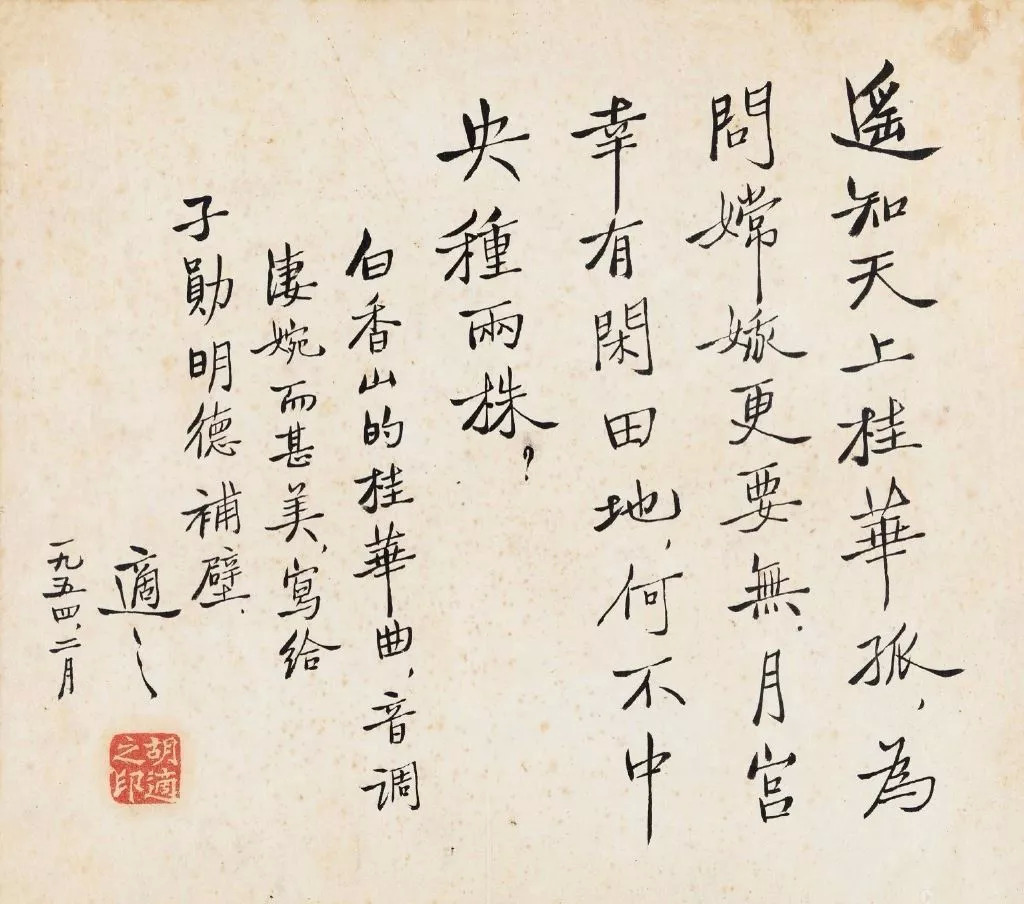 遙知天上桂華孤，為
問嫦娥更要無，月宮
幸有閑田地，何不中
央種兩株？
白香山的桂華曲，音調
淒婉而甚美，寫給
子勛明德補壁．
適之
一九五四，二月
胡適之印